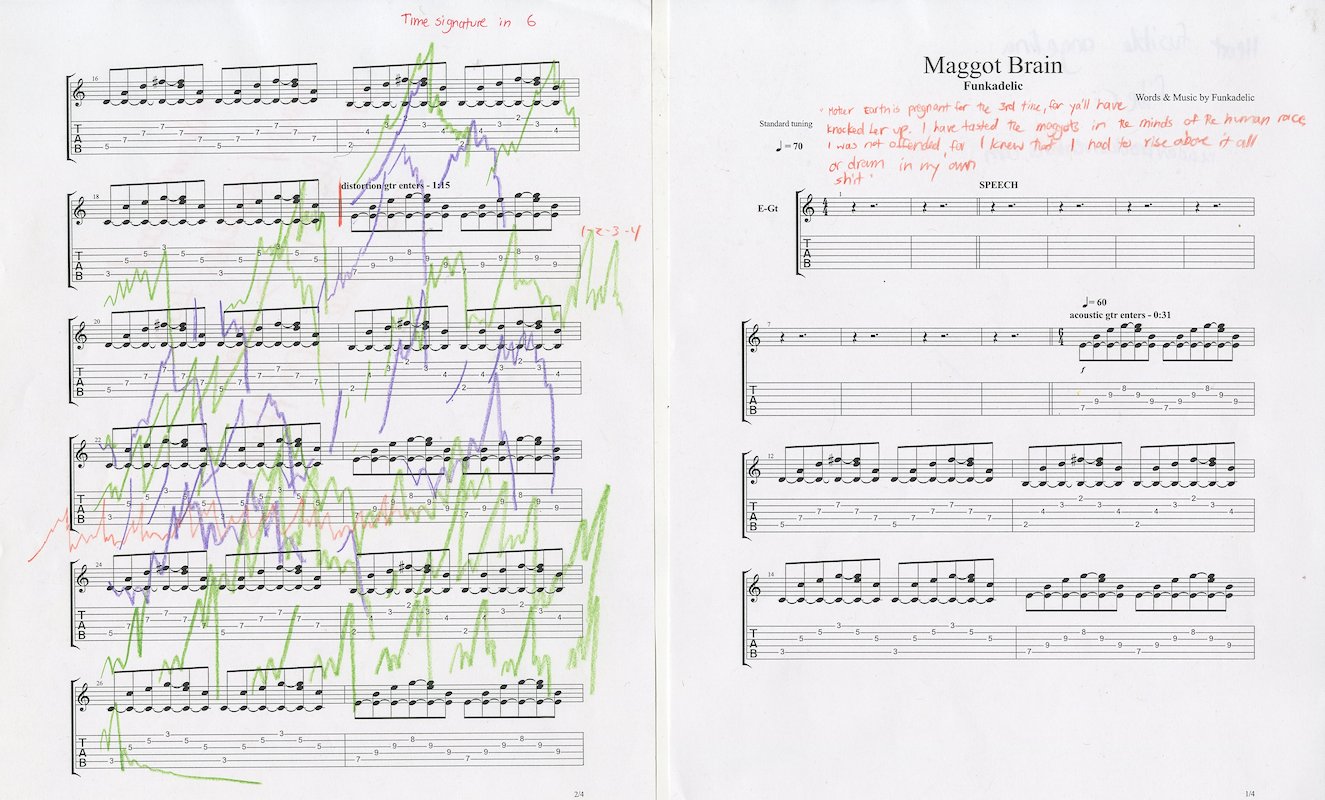 Time signature in 6
16
distortion gtr enters - 1:15
18
1-2-3-4
20
22
24
26
2/4
Maggot Brain
Funkadelic
Words & Music by Funkadelic
"Mother Earth is pregnant for the 3rd time, for ya'll have
knocked her up. I have tasted the maggots in the minds of the human race
I was not offended for I knew that I had to rise above it all
or drown in my own
shit"
Standard tuning
= 70
SPEECH
E-Gt
1
TAB
= 60
acoustic gtr enters - 0:31
7
f
TAB
7 9 9 8 9 9 7 9 9 8 9 9
12
TAB
14
TAB
1/4